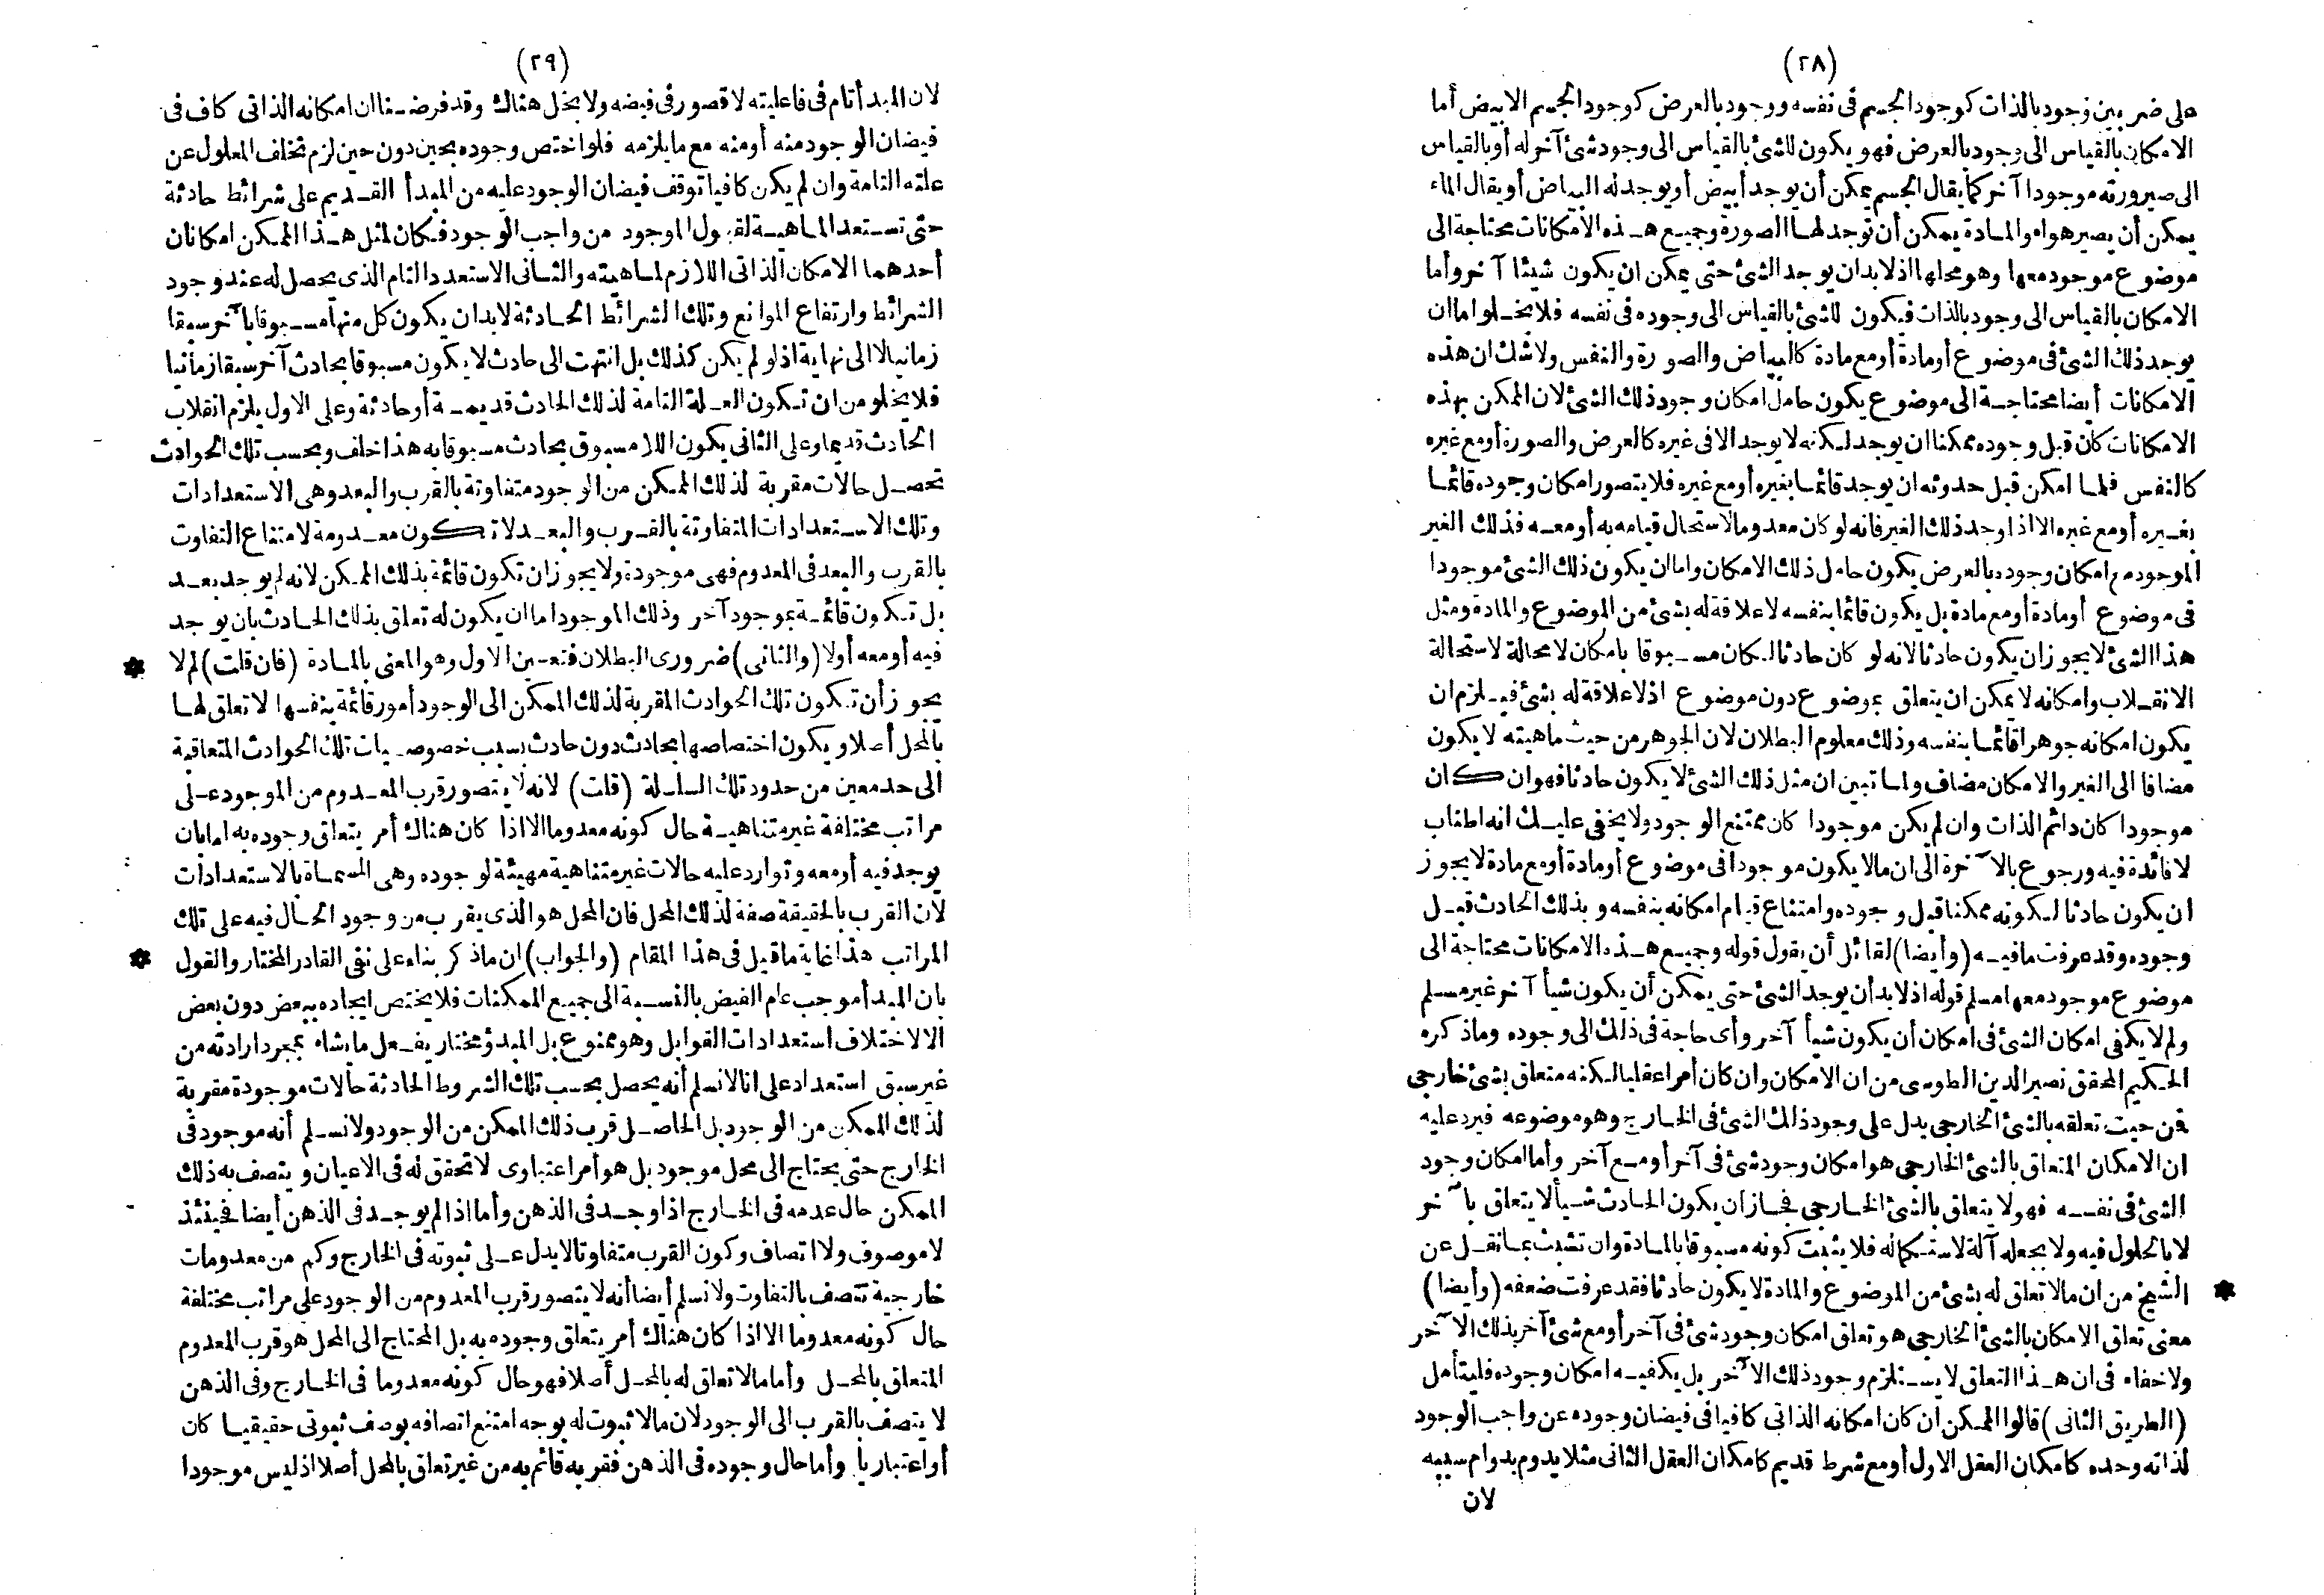 (٢٨)
على ضربين وجود بالذات كوجود الجسم فى نفسه ووجود بالعرض كوجود الجسم الابيض أما
الامكان بالقياس الى وجود بالعرض فهو يكون للشئ بالقياس الى وجود شئ آخر له أو بالقياس
الى صيرورته موجودا آخر كما يقال الجسم يمكن أن يوجد أبيض أو يوجد له البياض أو يقال الماء
يمكن أن يصير هواء والمادة يمكن أن توجد لها الصورة وجميع هذه الامكانات محتاجة الى
موضوع موجود معها وهو محلها اذ لا بد ان يوجد الشئ حتى يمكن ان يكون شيئا آخر وأما
الامكان بالقياس الى وجود بالذات فيكون للشئ بالقياس الى وجوده فى نفسه فلا يخلو اما ان
يوجد ذلك الشئ فى موضوع أو مادة أو مع مادة كالبياض والصورة والنفس ولا شك ان هذه
الامكانات أيضا محتاجة الى موضوع يكون حامل امكان وجود ذلك الشئ لان الممكن بهذه
الامكانات كان قبل وجوده ممكنا ان يوجد لكنه لا يوجد الا فى غيره كالعرض والصورة أو مع غيره
كالنفس فلما امكن قبل حدوثه ان يوجد قائما بغيره أو مع غيره فلا يتصور امكان وجوده قائما
بغيره أو مع غيره الا اذا وجد ذلك الغير فانه لو كان معدوما لاستحال قيامه به أو معه فذلك الغير
الموجود مع امكان وجوده بالعرض يكون حامل ذلك الامكان واما ان يكون ذلك الشئ موجودا
فى موضوع أو مادة أو مع مادة بل يكون قائما بنفسه لا علاقة له بشئ من الموضوع والمادة ومثل
هذا الشئ لا يجوز ان يكون حادثا لانه لو كان حادثا لكان مسبوقا بامكان لا محالة لاستحالة
الانقلاب وامكانه لا يمكن ان يتعلق بموضوع دون موضوع اذ لا علاقة له بشئ فيلزم ان
يكون امكانه جوهرا قائما بنفسه وذلك معلوم البطلان لان الجوهر من حيث ماهيته لا يكون
مضافا الى الغير والامكان مضاف ولما تبين ان مثل ذلك الشئ لا يكون حادثا فهو ان كان
موجودا كان دائم الذات وان لم يكن موجودا كان ممتنع الوجود ولا يخفى عليك انه اطناب
لا فائدة فيه ورجوع بالآخرة الى ان ما لا يكون موجودا فى موضوع أو مادة أو مع مادة لا يجوز
ان يكون حادثا لكونه ممكنا قبل وجوده وامتناع قيام امكانه بنفسه وبذلك الحادث قبل
وجوده وقد عرفت ما فيه (وأيضا) لقائل أن يقول قوله وجميع هذه الامكانات محتاجة الى
موضوع موجود معها مسلم قوله اذ لا بد أن يوجد الشئ حتى يمكن أن يكون شيأ آخر غير مسلم
ولم لا يكفى امكان الشئ فى امكان أن يكون شيأ آخر وأى حاجة فى ذلك الى وجوده وما ذكره
الحكيم المحقق نصير الدين الطوسى من ان الامكان وان كان أمرا عقليا لكنه متعلق بشئ خارجى
فمن حيث تعلقه بالشئ الخارجى يدل على وجود ذلك الشئ فى الخارج وهو موضوعه فيرد عليه
ان الامكان المتعلق بالشئ الخارجى هو امكان وجود شئ فى آخر أو مع آخر وأما امكان وجود
الشئ فى نفسه فهو لا يتعلق بالشئ الخارجى فجاز ان يكون الحادث شيأ لا يتعلق بآخر
لا بالحلول فيه ولا بجعله آلة لاستكماله فلا يثبت كونه مسبوقا بالمادة وان تشبث بما نقل عن
الشيخ من ان ما لا تعلق له بشئ من الموضوع والمادة لا يكون حادثا فقد عرفت ضعفه (وأيضا) *
معنى تعلق الامكان بالشئ الخارجى هو تعلق امكان وجود شئ فى آخر أو مع شئ آخر بذلك الآخر
ولا خفاء فى ان هذا التعلق لا يستلزم وجود ذلك الآخر بل يكفيه امكان وجوده فليتأمل
(الطريق الثانى) قالوا الممكن ان كان امكانه الذاتى كافيا فى فيضان وجوده عن واجب الوجود
لذاته وحده كامكان العقل الاول أو مع شرط قديم كامكان العقل الثانى مثلا يدوم بدوام سببه
لان
(٢٩)
لان المبدأ تام فى فاعليته لا قصور فى فيضه ولا بخل هناك وقد فرضنا ان امكانه الذاتى كاف فى
فيضان الوجود منه أو منه مع ما يلزمه فلو اختص وجوده بحين دون حين لزم تخلف المعلول عن
علته التامة وان لم يكن كافيا توقف فيضان الوجود عليه من المبدأ القديم على شرائط حادثة
حتى تستعد الماهية لقبول الوجود من واجب الوجود فكان لمثل هذا الممكن امكانان
أحدهما الامكان الذاتى اللازم لماهيته والثانى الاستعداد التام الذى يحصل له عند وجود
الشرائط وارتفاع الموانع وتلك الشرائط الحادثة لا بد ان يكون كل منها مسبوقا بآخر سبقا
زمانيا لا الى نهاية اذ لو لم يكن كذلك بل انتهت الى حادث لا يكون مسبوقا بحادث آخر سبقا زمانيا
فلا يخلو من ان تكون العلة التامة لذلك الحادث قديمة أو حادثة وعلى الاول يلزم انقلاب
الحادث قديما وعلى الثانى يكون اللا مسبوق بحادث مسبوقا به هذا خلف وبحسب تلك الحوادث
تحصل حالات مقربة لذلك الممكن من الوجود متفاوتة بالقرب والبعد وهى الاستعدادات
وتلك الاستعدادات المتفاوتة بالقرب والبعد لا تكون معدومة لامتناع التفاوت
بالقرب والبعد فى المعدوم فهى موجودة ولا يجوز ان تكون قائمة بذلك الممكن لانه لم يوجد بعد
بل تكون قائمة بموجود آخر وذلك الموجود اما ان يكون له تعلق بذلك الحادث بان يوجد
فيه أو معه أولا (والثانى) ضرورى البطلان فتعين الاول وهو المعنى بالمادة (فان قلت) لم لا *
يجوز أن تكون تلك الحوادث المقربة لذلك الممكن الى الوجود أمور قائمة بنفسها لا تعلق لها
بالمحل أصلا ويكون اختصاصها بحادث دون حادث بسبب خصوصيات تلك الحوادث المتعاقبة
الى حد معين من حدود تلك السلسلة (قلت) لانه لا يتصور قرب المعدوم من الموجود على
مراتب مختلفة غير متناهية حال كونه معدوما الا اذا كان هناك أمر يتعلق وجوده به اما بان
يوجد فيه أو معه وتوارد عليه حالات غير متناهية مهيئة لوجوده وهى المسماة بالاستعدادات
لان القرب بالحقيقة صفة لذلك المحل فان المحل هو الذى يقرب من وجود الحال فيه على تلك
المراتب هذا غاية ما قيل فى هذا المقام (والجواب) ان ما ذكر بناء على نفى القادر المختار والقول *
بان المبدأ موجب عام الفيض بالنسبة الى جميع الممكنات فلا يختص ايجاده ببعض دون بعض
الا لاختلاف استعدادات القوابل وهو ممنوع بل المبدؤ مختار يفعل ما يشاء بمجرد ارادته من
غير سبق استعداد على انا لا نسلم أنه يحصل بحسب تلك الشروط الحادثة حالات موجودة مقربة
لذلك الممكن من الوجود بل الحاصل قرب ذلك الممكن من الوجود ولا نسلم أنه موجود فى
الخارج حتى يحتاج الى محل موجود بل هو أمر اعتبارى لا تحقق له فى الاعيان ويتصف به ذلك
الممكن حال عدمه فى الخارج اذا وجد فى الذهن وأما اذا لم يوجد فى الذهن أيضا فحينئذ
لا موصوف ولا اتصاف وكون القرب متفاوتا لا يدل على ثبوته فى الخارج وكم من معدومات
خارجية تتصف بالتفاوت ولا نسلم أيضا أنه لا يتصور قرب المعدوم من الوجود على مراتب مختلفة
حال كونه معدوما الا اذا كان هناك أمر يتعلق وجوده به بل المحتاج الى المحل هو قرب المعدوم
المتعلق بالمحل وأما ما لا تعلق له بالمحل أصلا فهو حال كونه معدوما فى الخارج وفى الذهن
لا يتصف بالقرب الى الوجود لان ما لا ثبوت له بوجه امتنع اتصافه بوصف ثبوتى حقيقيا كان
أو اعتباريا وأما حال وجوده فى الذهن فقربه قائم به من غير تعلق بالمحل أصلا اذ ليس موجودا